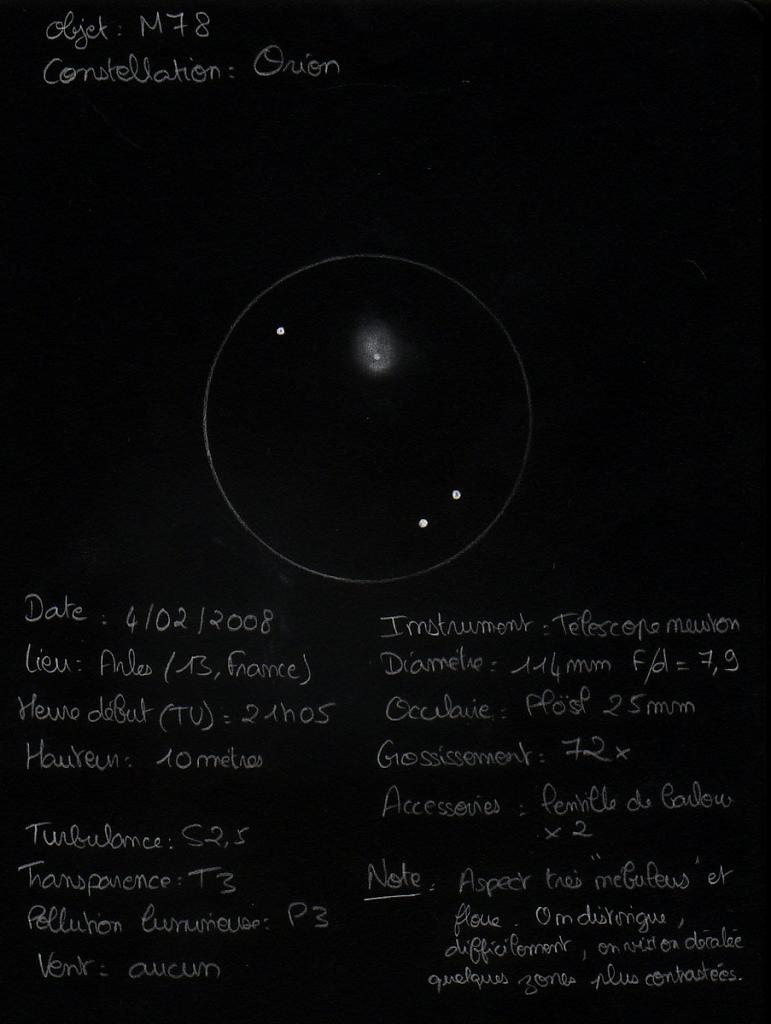 Objet : M78
Constellation : Orion
Date : 4/02/2008
Lieu : Arles (13, France)
Heure début (TU) : 21h05
Hauteur : 10 mètres
Turbulance : S2,5
Transparence : T3
Pollution lumineuse : P3
Vent : aucun
Instrument : Télescope newton
Diamètre : 114mm F/d = 7,9
Occulaire : Plösl 25mm
Grossissement : 72x
Accessories : lentille de barlow
x 2
Note : Aspect très "nébuleux" et
floue. On distingue,
difficilement, en vision décalée
quelques zones plus contrastées.